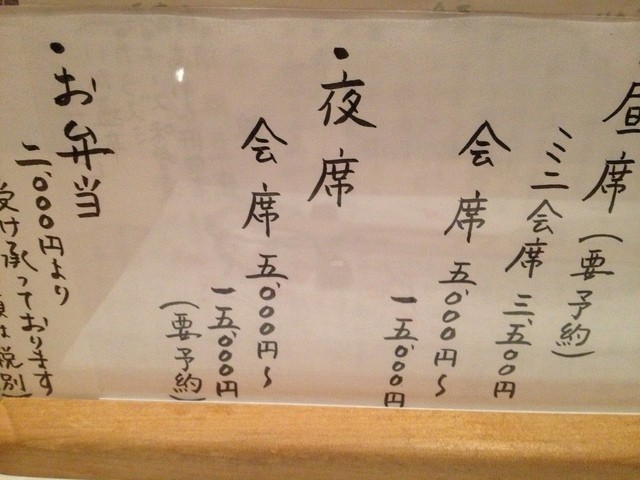 昼席(要予約)
ミニ会席 三、五〇〇円
会席 五、〇〇〇円〜
一五、〇〇〇円
・夜席
会席 五、〇〇〇円〜
一五、〇〇〇円
(要予約)
・お弁当
二、〇〇〇円より
承っております
受け
税別)